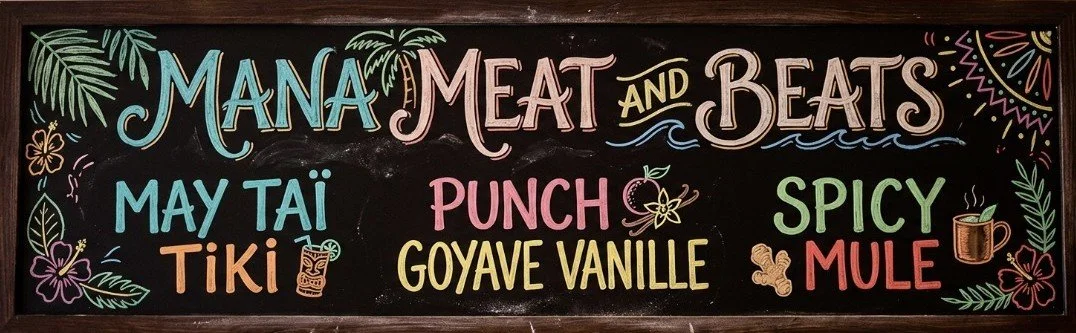 MANA MEAT AND BEATS
MAY TAÏ
TiKi
PUNCH
GOYAVE VANILLE
SPICY
MULE